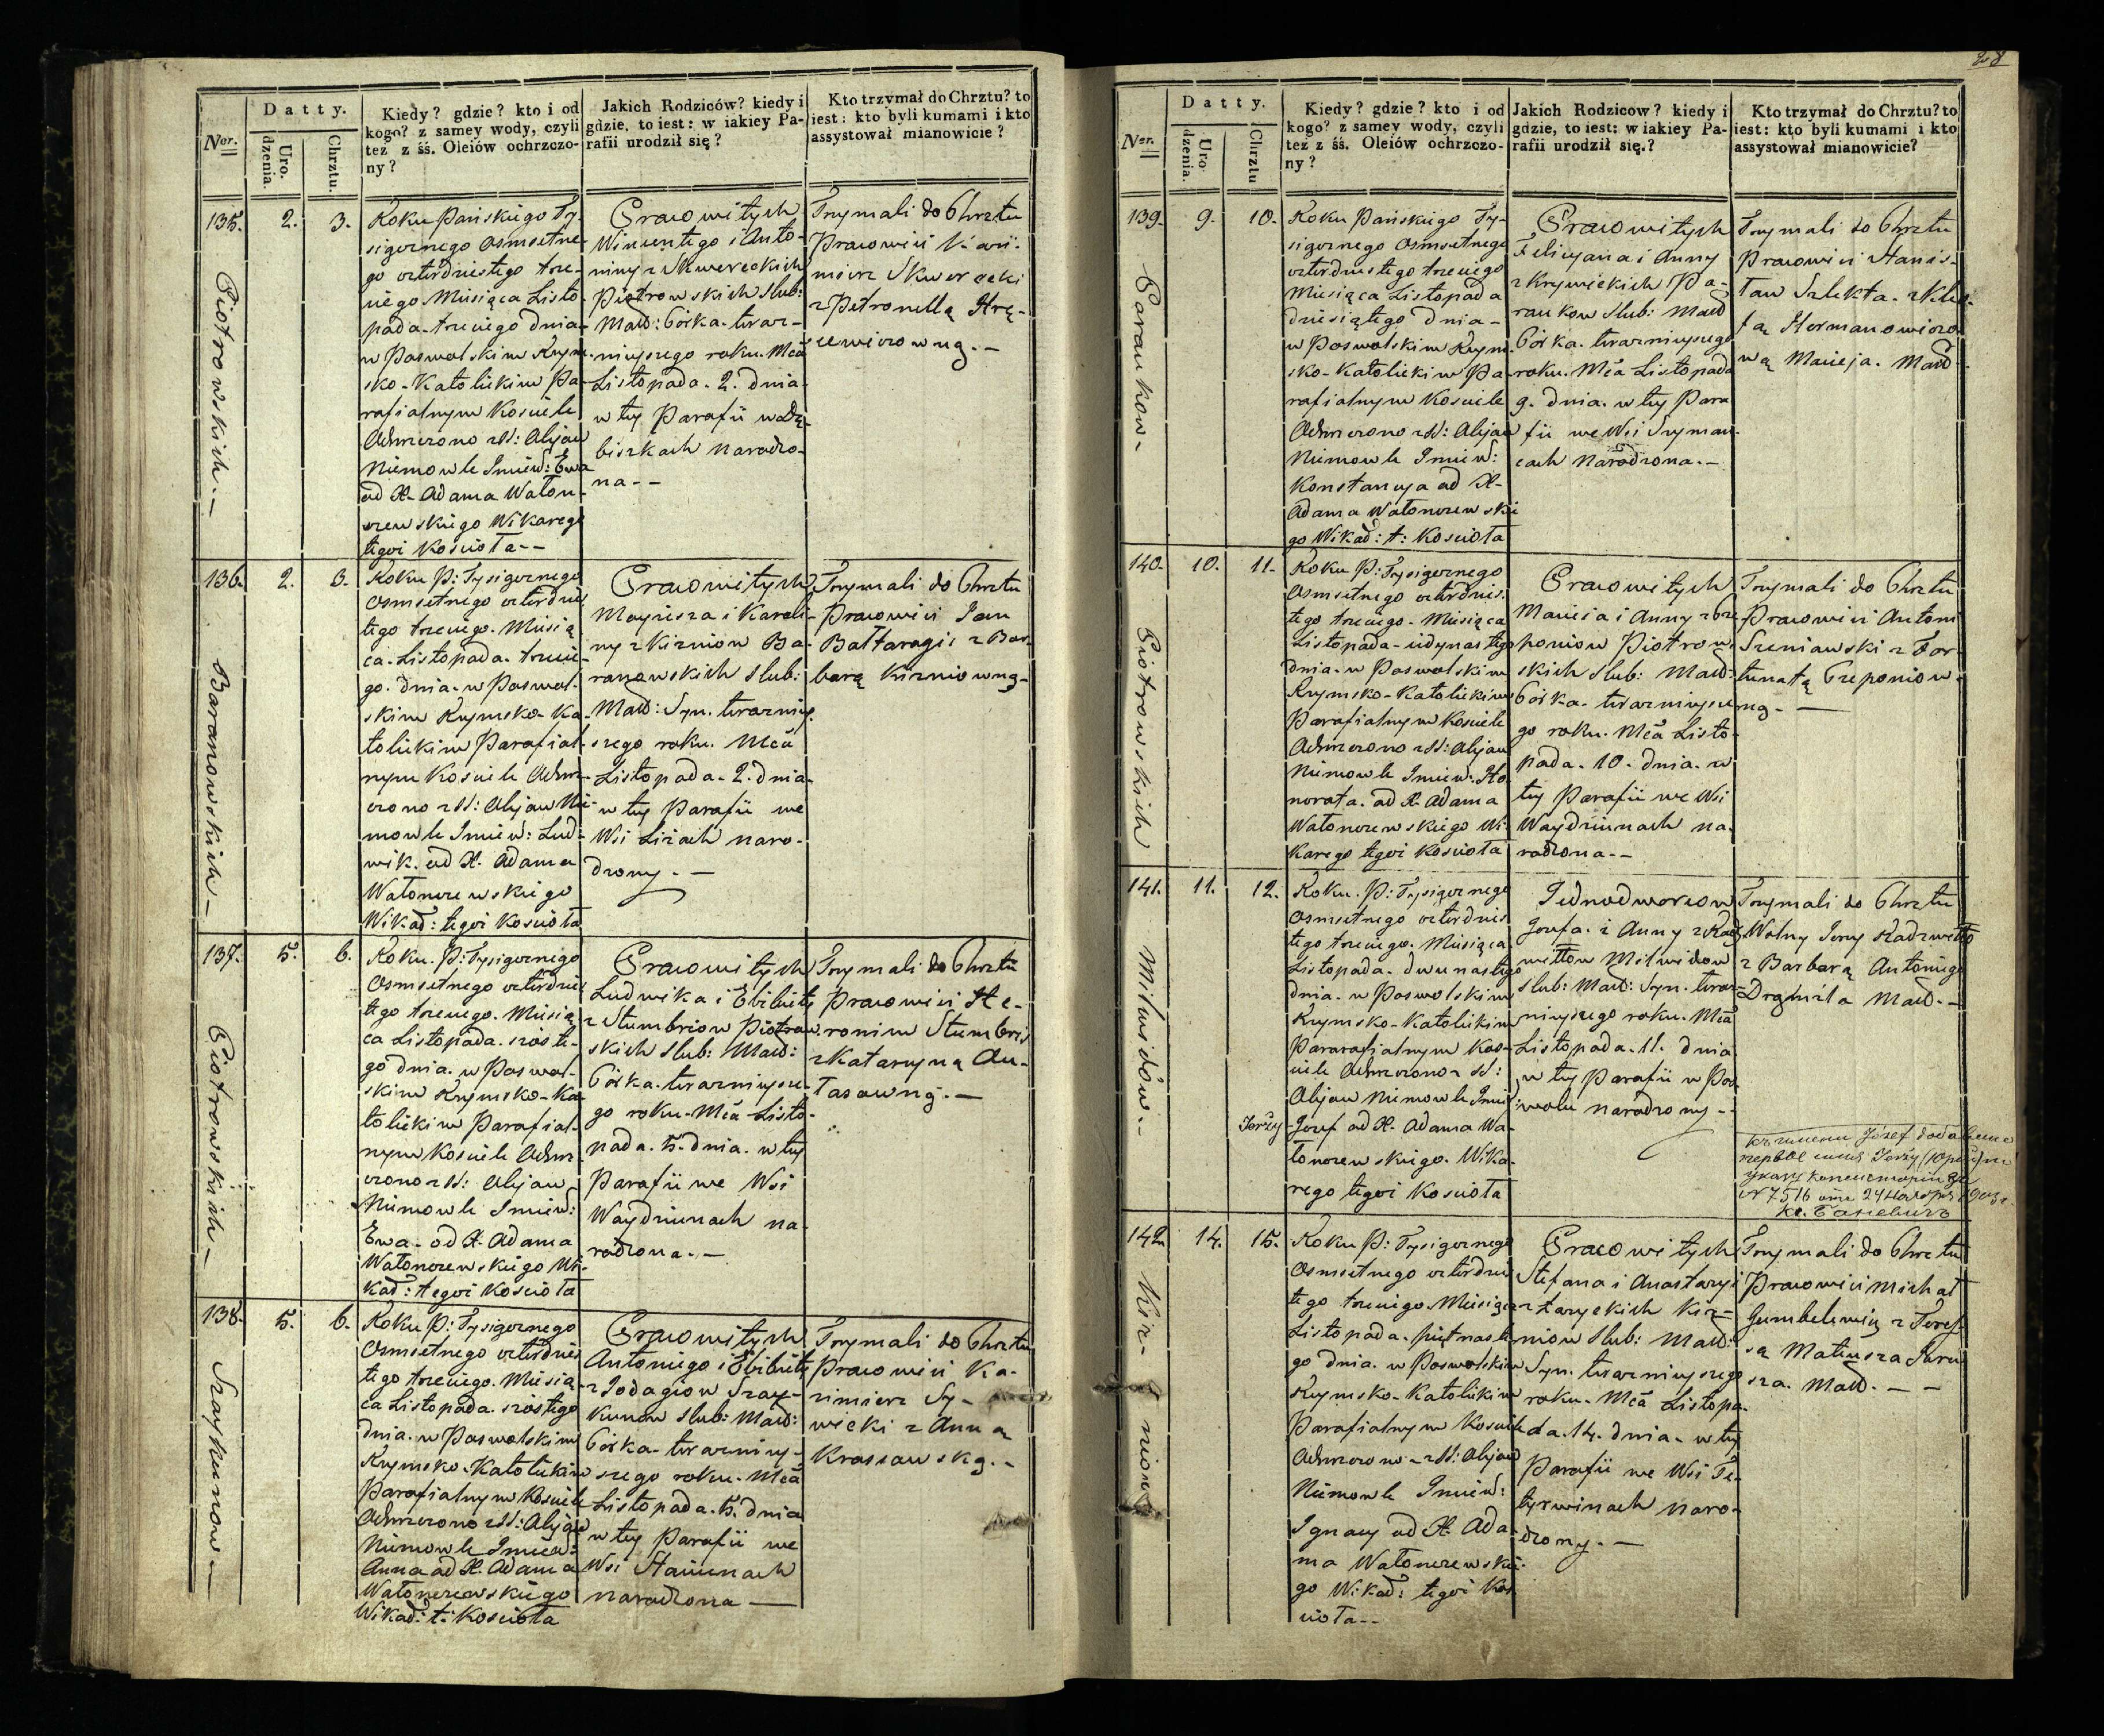 Datty.
Ner.
Uro.
dzenia.
Chrztu.
Kiedy? gdzie? kto i od
kogo? z samey wody, czyli
też z śś. Oleiów ochrzczo-
ny?
Jakich Rodziców? kiedy i
gdzie, to iest: w iakiey Pa-
rafii urodził się?
Kto trzymał do Chrztu? to
iest: kto byli kumami i kto
assystował mianowicie?
135.
2.
3.
Piotrowskich.-
Roku Pańskiego Ty-
siącznego Osmsetne-
go czterdziestego trze-
ciego Miesiąca Listo-
pada trzeciego dnia
w Poswolskim Rzym-
sko-Katolickim Pa-
rafialnym Kościele
Ochrzczono z SS: Olejow
Niemowle Imiew: Ewa
od X. Adama Waton-
czewskiego Wikarego
tegoi Kościoła--
Pracowitych
Wincentego i Anto-
niny z Skwereckich
Piotrowskich Slub:
Małż: Córka. teraz-
nieyszego roku. Mca
Listopada. 2. dnia
w tey Parafii w
biszkach narodzo-
na--
Trzymali do Chrztu
Pracowici Kazi-
mierz Skwerecki
z Petronellą
136.
2.
3.
Baranowskich-
Roku P: Tysiącznego
Osmsetnego czterdzies
tego trzeciego. Miesią
ca. Listopada. trzecie-
go. dnia. w Poswol-
skim Rzymsko-Ka-
tolickim Parafial-
nym Kościele Ochrz-
czono z SS: Olejow Nie-
mowle Imiew: Lud-
wik. od X. Adama
Watonczewskiego
Wikar: tegoi Kościoła
Pracowitych
Mayiesza i Karoli-
ny z Kirniow Ba-
ranowskich Slub:
Małż: Syn. teraźniey-
szego roku. Mca
Listopada. 2. dnia
w tey Parafii we
Wsi Liżach naro-
dzony.-
Trzymali do Chrztu
Pracowici Jan
Baltaragis z Bar-
barą Kirniowną-
137.
5.
6.
Piotrowskich-
Roku. P: Tysiącznego
Osmsetnego czterdzies
tego trzeciego. Miesią
ca Listopada. szoste-
go dnia. w Poswol-
skim Rzymsko-Ka-
tolickim Parafial-
nym Kościele Ochrz-
czono z SS: Olejow
Niemowle Imiew:
Ewa. od X. Adama
Watonczewskiego Wi-
kar: tegoi Kościoła
Pracowitych
Ludwika i Elżbiety
z Stumbriow Piotrow-
skich Slub: Małż:
Córka. teraznieysze-
go roku. Mca Listo-
pada. 5. dnia. w tey
Parafii we Wsi
Waydziunach na-
rodzona.-
Trzymali do Chrztu
Pracowici He-
ronim Stumbris
z Katarzyną
138.
5.
6.
Szaykunow-
Roku P: Tysiącznego
Osmsetnego czterdzies
tego trzeciego. Miesią-
ca Listopada. szostego
dnia. w Poswolskim
Rzymsko-Katolickim
Parafialnym Kościele
Ochrzczono z SS: Olejow
Niemowle Imiew:
Anna od X. Adama
Watonczewskiego
Wikar: t: Kościoła
Pracowitych
Antoniego i Elżbiety
z Jodagiow Szay-
kunow Slub: Małż:
Córka. teraźniey-
szego roku. Mca
Listopada. 5. dnia
w tey Parafii we
Wsi Staniunach
narodzona-
Trzymali do Chrztu
Pracowici Ka-
zimierz Sy-
wicki z Anną
Krassowską.-
28
Datty.
Ner.
Uro
dzenia.
Chrztu
Kiedy? gdzie? kto i od
kogo? z samey wody, czyli
też z śś. Oleiów ochrzczo-
ny?
Jakich Rodzicow? kiedy i
gdzie, to iest: w iakiey Pa-
rafii urodził się.?
Kto trzymał do Chrztu? to
iest: kto byli kumami i kto
assystował mianowicie?
139.
9.
10.
Paraukow-
Roku Pańskiego Ty-
siącznego Osmsetnego
czterdziestego trzeciego
Miesiąca Listopada
dziesiątego dnia-
w Poswolskim Rzym-
sko-Katolickim Pa-
rafialnym Kościele
Ochrzczono z SS: Olejow
Niemowle Imiew:
Konstancya od X-
Adama Watonczewskie
go Wikar: t: Kościoła
Pracowitych
Felicyana i Anny
z Krywickich Pa-
raukow Slub: Małż
Córka. teraznieyszego
roku. Mca Listopada
9. dnia. w tey Para
fii we Wsi Szyman-
cach Narodzona.-
Trzymali do Chrztu
Pracowici Stanis-
ław Szlekta. z
Hermanowiczo-
wą Macieja. Małż-
140.
10.
11.
Piotrowskich
Roku P: Tysiącznego
Osmsetnego czterdzies-
tego trzeciego. Miesiąca
Listopada iedynastego
dnia. w Poswolskim
Rzymsko-Katolickim
Parafialnym Kościele
Ochrzczono z SS: Olejow
Niemowle Imiew: Ho-
norata. od X. Adama
Watonczewskiego Wi-
karego tegoi Kościoła
Pracowitych
Macieia i Anny z Cze
poniow Piotrow-
skich Slub: Małż:
Córka. teraznieysze
go roku. Mca Listo-
pada. 10. dnia. w
tey Parafii we Wsi
Waydziunach na-
rodzona.-
Trzymali do Chrztu
Pracowici Antoni
Szeniawski z For-
tunatą Czeponiow-
ną.-
141.
11.
12.
Milwidów.-
Roku. P: Tysiącznego
Osmsetnego czterdzies
tego trzeciego. Miesiąca
Listopada. dwunastego
dnia. w Poswolskim
Rzymsko-Katolickim
Pararafialnym Koś-
ciele Ochrzczono z SS:
Olejow Niemowle Imie
Jerzy
Jozef od X. Adama Wa-
tonczewskiego. Wika-
rego tegoi Kościoła
Jednodworcow
Jozefa. i Anny z Radz
wiłłow Milwidow
Slub: Małż: Syn. teraz-
nieyszego roku. Mca
Listopada. 11. dnia
w tey Parafii w Pos
wolu narodzony--
Trzymali do Chrztu
Wolny Jerzy Radziwiłło
z Barbarą Antoniego
Małż.-
Józef
Jerzy
№ 7516
142.
14.
15.
Kirniow
Roku P: Tysiącznego
Osmsetnego czterdzies
tego trzeciego. Miesiąca
Listopada. piętnaste
go dnia. w Poswolskim
Rzymsko-Katolickim
Parafialnym Kościele
Ochrzczono z SS: Olejow
Niemowle Imiew:
Ignacy od X. Ada-
ma Watonczewskie-
go Wikar: tegoi Koś
cioła--
Pracowitych
Stefana i Anastazyi
z Kir-
niow Slub: Małż:
Syn. teraznieyszego
roku. Mca Listopa-
da. 14. dnia. w tey
Parafii we Wsi Te-
tyrwinach naro-
dzony.-
Trzymali do Chrztu
Pracowici Michał
Gumbelewicz z Teres-
są Mateusza
Małż.--